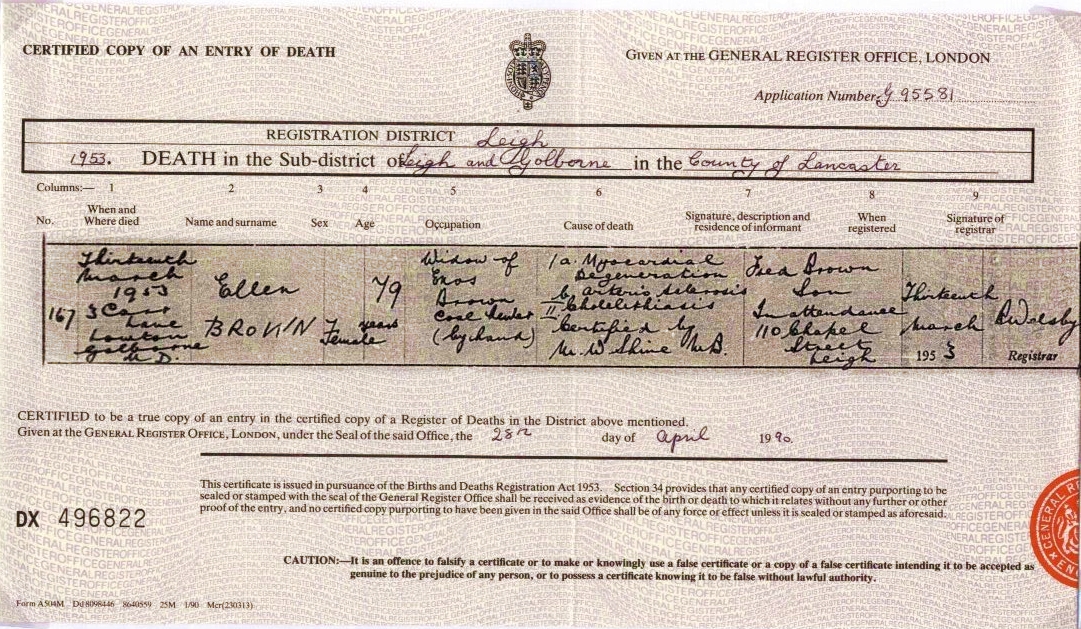 CERTIFIED COPY OF AN ENTRY OF DEATH
GIVEN AT THE GENERAL REGISTER OFFICE, LONDON
Application Number G 95581
REGISTRATION DISTRICT Leigh
1953. DEATH in the Sub-district of Leigh and Golborne in the County of Lancaster
Columns:— 1 2 3 4 5 6 7 8 9
No. When and Where died Name and surname Sex Age Occupation Cause of death Signature, description and residence of informant When registered Signature of registrar
167
Thirteenth
March
1953
3 Carr
Lane
Lowton
Golborne
U.D.
Ellen
BROWN
Female
79
years
Widow of
Enos
Brown
Coal Hewer
(by hand)
1a. Myocardial
Degeneration
b arterio sclerosis
II Cholelithiasis
Certified by
M. W Shine M.B.
Fred Brown
Son
In attendance
110 Chapel
Street
Leigh
Thirteenth
March
1953
Registrar
CERTIFIED to be a true copy of an entry in the certified copy of a Register of Deaths in the District above mentioned.
Given at the GENERAL REGISTER OFFICE, LONDON, under the Seal of the said Office, the 28th day of April 1990.
This certificate is issued in pursuance of the Births and Deaths Registration Act 1953. Section 34 provides that any certified copy of an entry purporting to be
sealed or stamped with the seal of the General Register Office shall be received as evidence of the birth or death to which it relates without any further or other
proof of the entry, and no certified copy purporting to have been given in the said Office shall be of any force or effect unless it is sealed or stamped as aforesaid.
DX 496822
CAUTION:—It is an offence to falsify a certificate or to make or knowingly use a false certificate or a copy of a false certificate intending it to be accepted as
genuine to the prejudice of any person, or to possess a certificate knowing it to be false without lawful authority.
Form A504M Dd 8098446 8640559 25M 1/90 Mcr(230313)